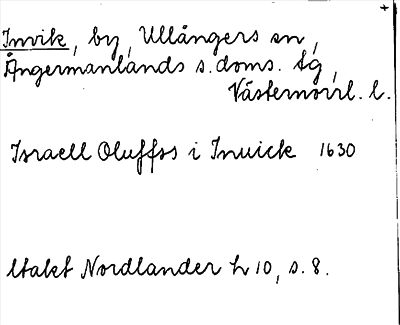 Invik, by, Ullångers sn,
Ångermanlands s. doms. tg,
Västernorrl. l.
Israell Oluffss i Inuick 1630
Utakt Nordlander h 10, s. 8.